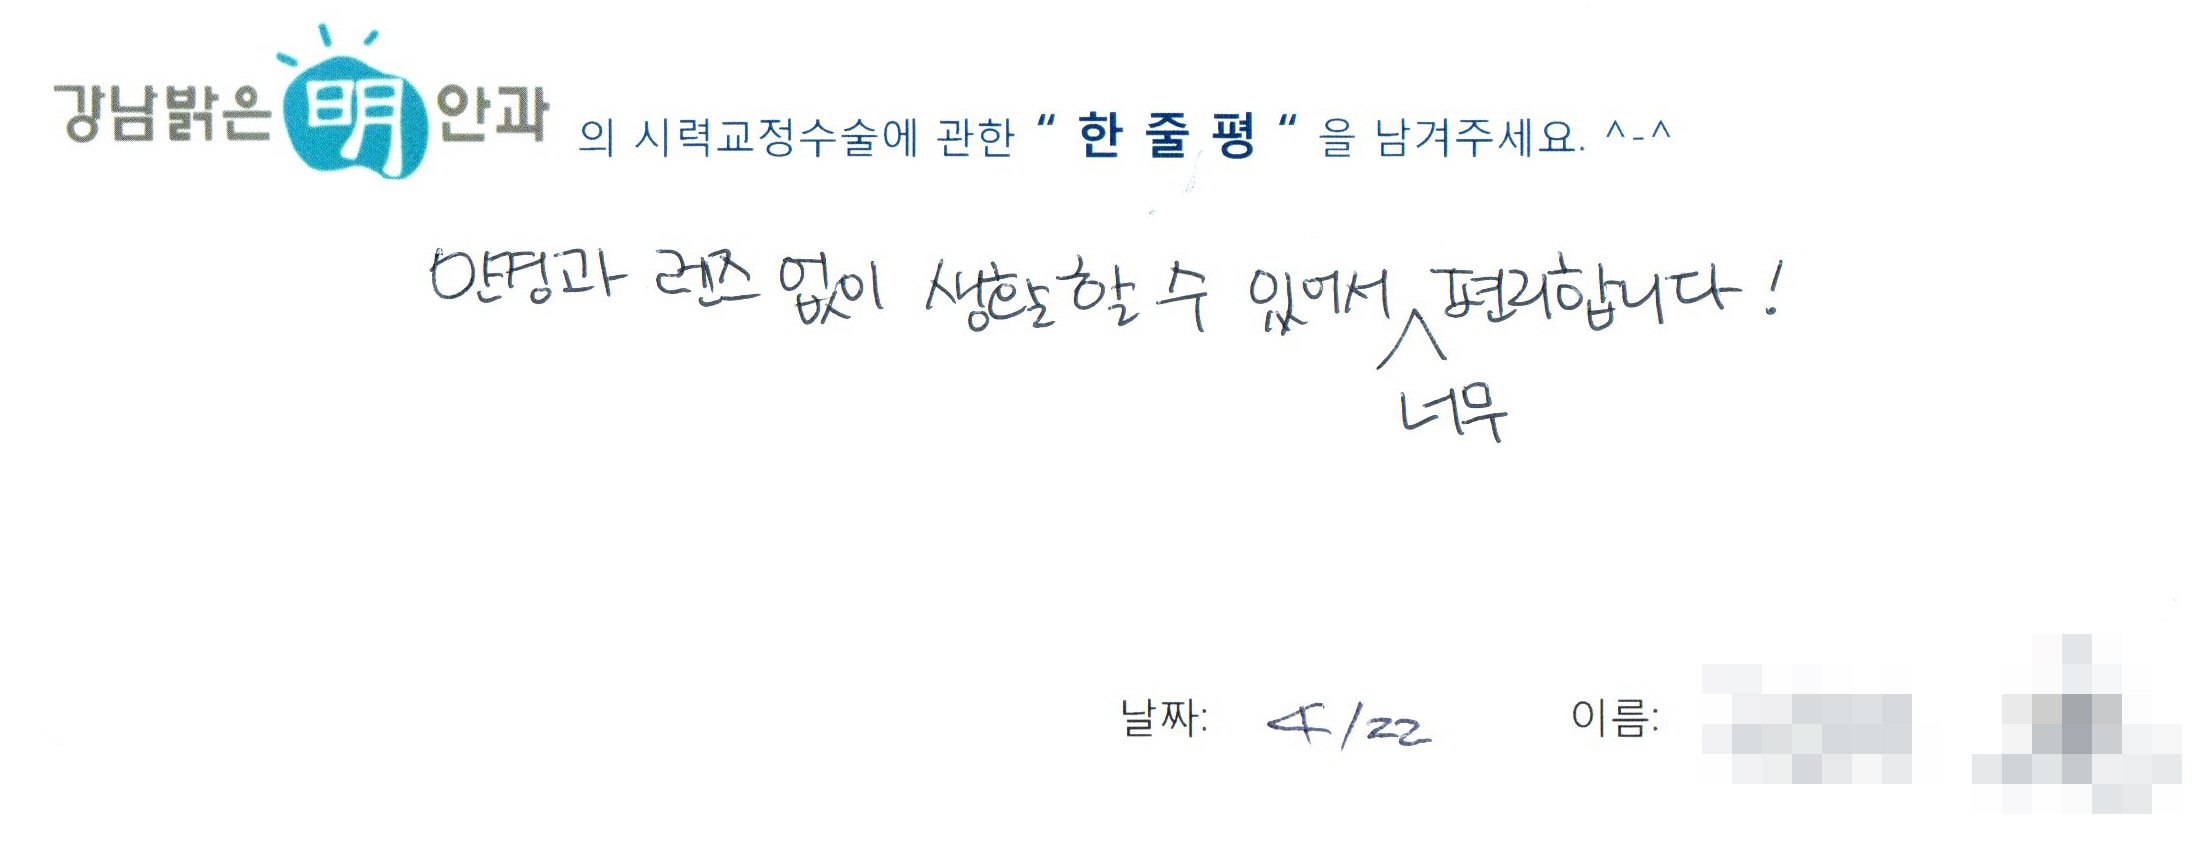 강남밝은 明 안과 의 시력교정수술에 관한 “ 한 줄 평 “ 을 남겨주세요. ^-^
안경과 렌즈 없이 생활할 수 있어서 편리합니다!
너무
날짜: 4/22 이름: